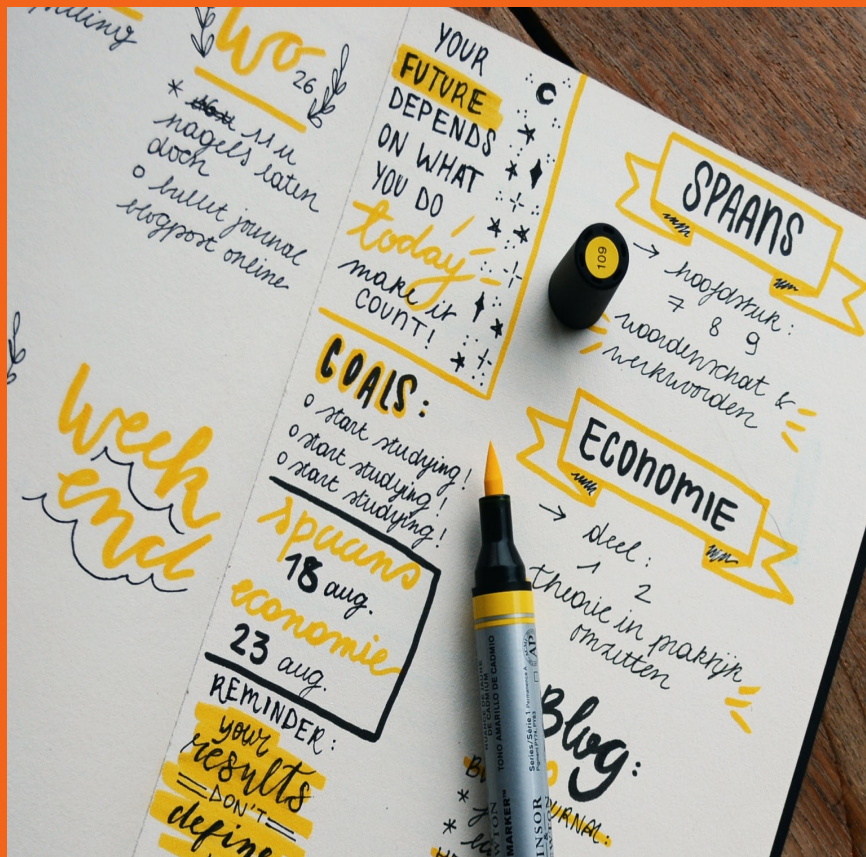 Wo
26
* 11 u
nagels laten
doen
o bullet journal
blogpost online
week
end
YOUR
FUTURE
DEPENDS
ON WHAT
YOU DO
today
make it
COUNT!
GOALS:
o start studying!
o start studying!
o start studying!
spaans
18 aug.
economie
23 aug.
REMINDER:
your
results
DON'T
define
SPAANS
→ hoofdstuk:
7 8 9
woordenschat &
werkwoorden
ECONOMIE
→ deel:
1 2
theorie in praktijk
omzetten
Blog:
109
DE CADMIUM
TONO AMARILLO DE CADMIO
Series/Série 1
AP
MARKER™